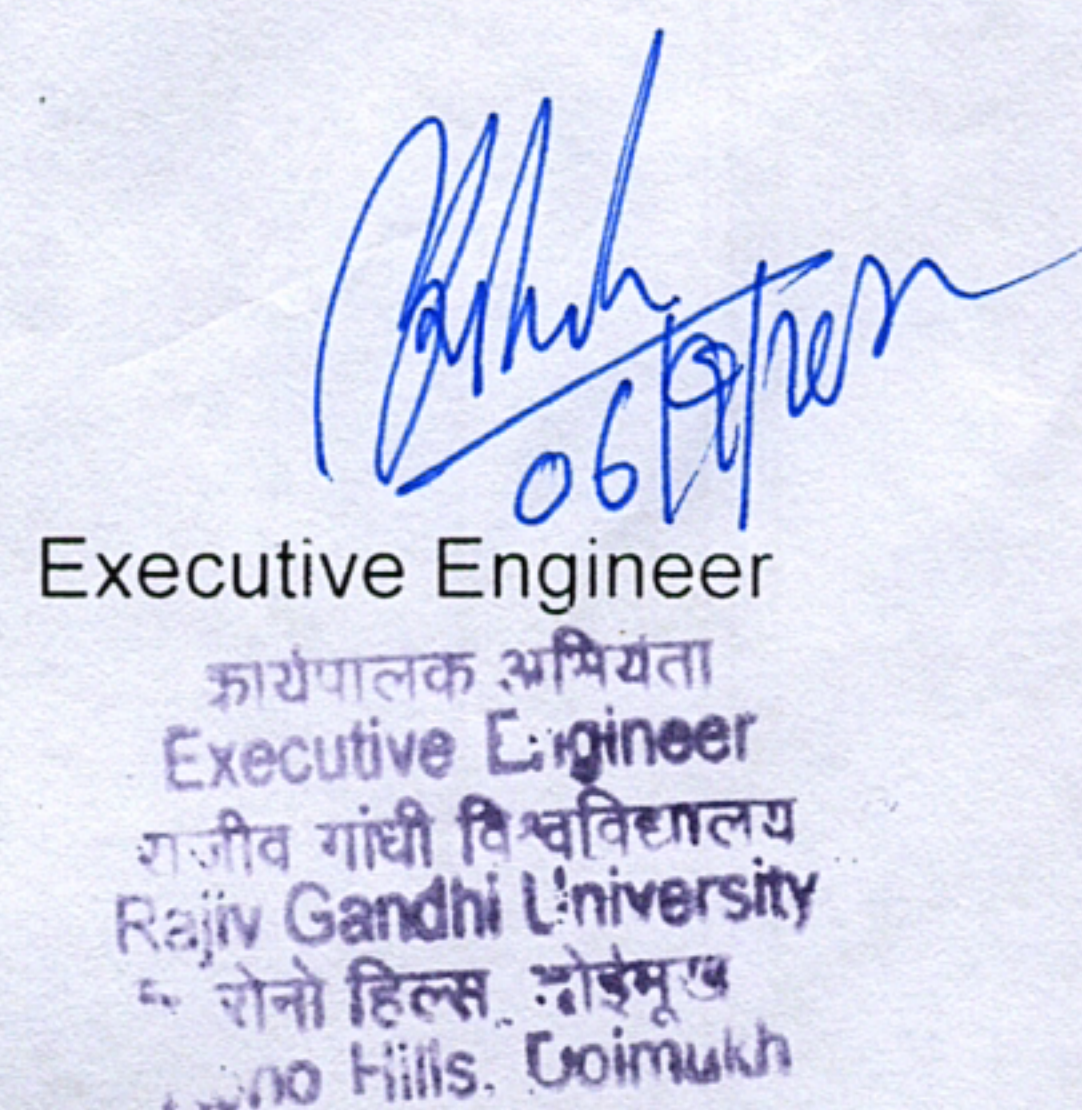 06
Executive Engineer
कार्यपालक अभियंता
Executive Engineer
राजीव गांधी विश्वविद्यालय
Rajiv Gandhi University
रोनो हिल्स, दोईमुख
Rono Hills, Doimukh